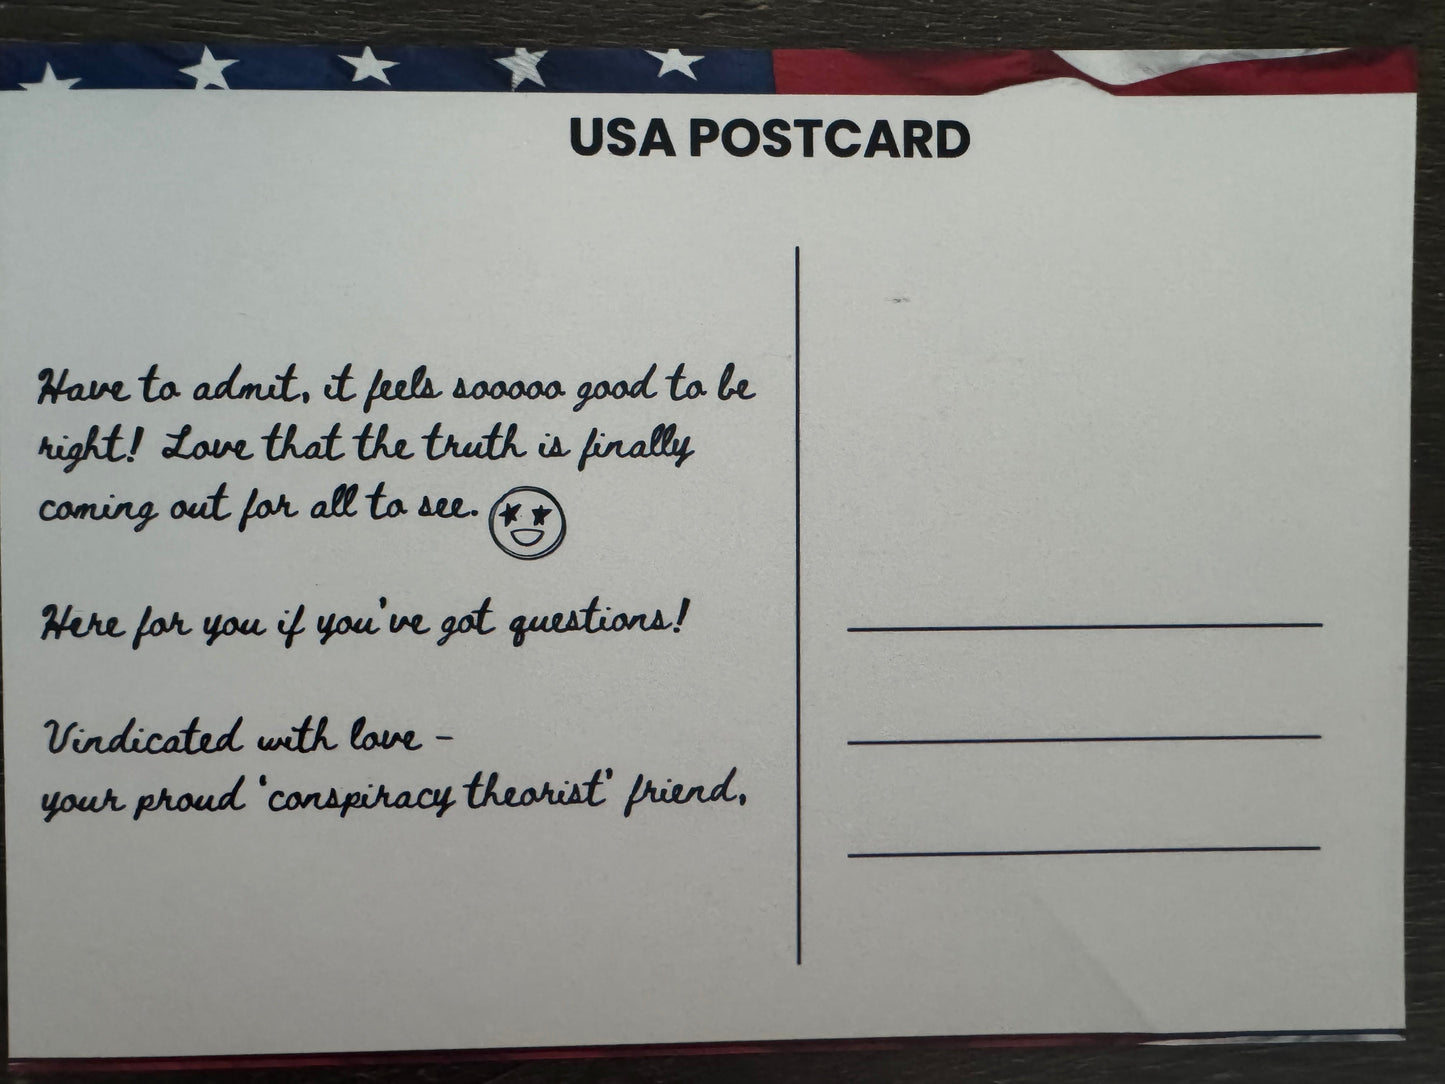 USA POSTCARD
Have to admit, it feels sooooo good to be
right! Love that the truth is finally
coming out for all to see.
Here for you if you've got questions!
Vindicated with love -
your proud 'conspiracy theorist' friend,